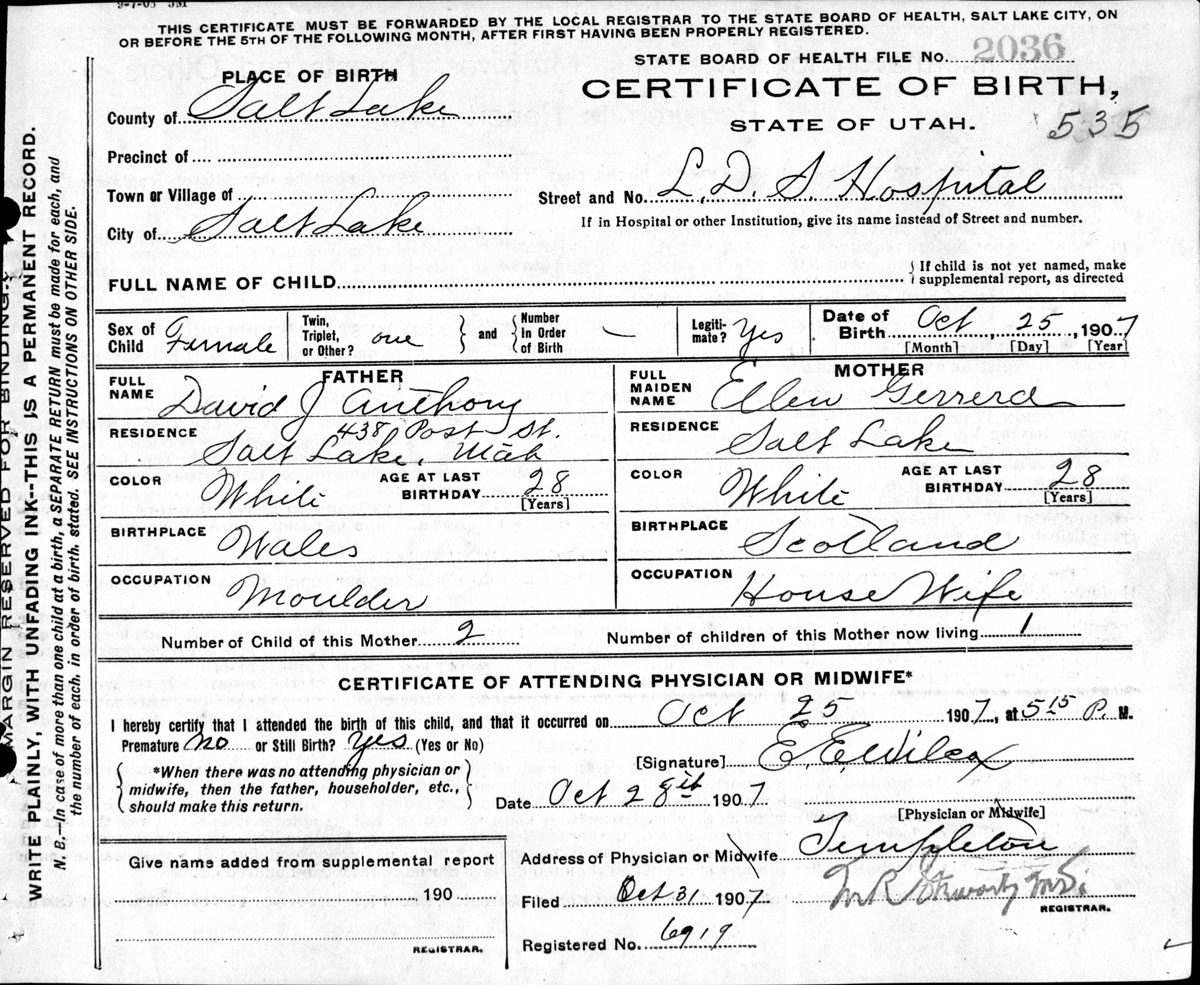 9-7-05 55M
THIS CERTIFICATE MUST BE FORWARDED BY THE LOCAL REGISTRAR TO THE STATE BOARD OF HEALTH, SALT LAKE CITY, ON
OR BEFORE THE 5TH OF THE FOLLOWING MONTH, AFTER FIRST HAVING BEEN PROPERLY REGISTERED.
STATE BOARD OF HEALTH FILE No. 2036
CERTIFICATE OF BIRTH,
STATE OF UTAH. 535
PLACE OF BIRTH
County of Salt Lake
Precinct of
Town or Village of
City of Salt Lake
Street and No. L. D. S. Hospital
If in Hospital or other Institution, give its name instead of Street and number.
FULL NAME OF CHILD
{ If child is not yet named, make
supplemental report, as directed
Sex of Child Female
Twin, Triplet, or Other? one } and { Number in Order of Birth —
Legiti-mate? Yes
Date of Birth Oct 25, 1907
[Month] [Day] [Year]
FATHER
FULL NAME David J Anthony
RESIDENCE 438 Post St.
Salt Lake, Utah
COLOR White AGE AT LAST BIRTHDAY 28
[Years]
BIRTHPLACE Wales
OCCUPATION Moulder
MOTHER
FULL MAIDEN NAME Ellen Gerrerd
RESIDENCE Salt Lake
COLOR White AGE AT LAST BIRTHDAY 28
[Years]
BIRTHPLACE Scotland
OCCUPATION House Wife
Number of Child of this Mother 2 Number of children of this Mother now living 1
CERTIFICATE OF ATTENDING PHYSICIAN OR MIDWIFE*
I hereby certify that I attended the birth of this child, and that it occurred on Oct 25 1907, at 5 15 P. M.
Premature no or Still Birth? Yes (Yes or No)
{ *When there was no attending physician or
midwife, then the father, householder, etc.,
should make this return. }
[Signature] E. E. Wilcox
Date Oct 28th 1907
[Physician or Midwife]
Address of Physician or Midwife Templeton
Filed Oct 31 1907
REGISTRAR.
Registered No. 6919
Give name added from supplemental report
190
REGISTRAR.
MARGIN RESERVED FOR BINDING.
WRITE PLAINLY, WITH UNFADING INK--THIS IS A PERMANENT RECORD.
N. B.—In case of more than one child at a birth, a SEPARATE RETURN must be made for each, and
the number of each, in order of birth, stated. SEE INSTRUCTIONS ON OTHER SIDE.